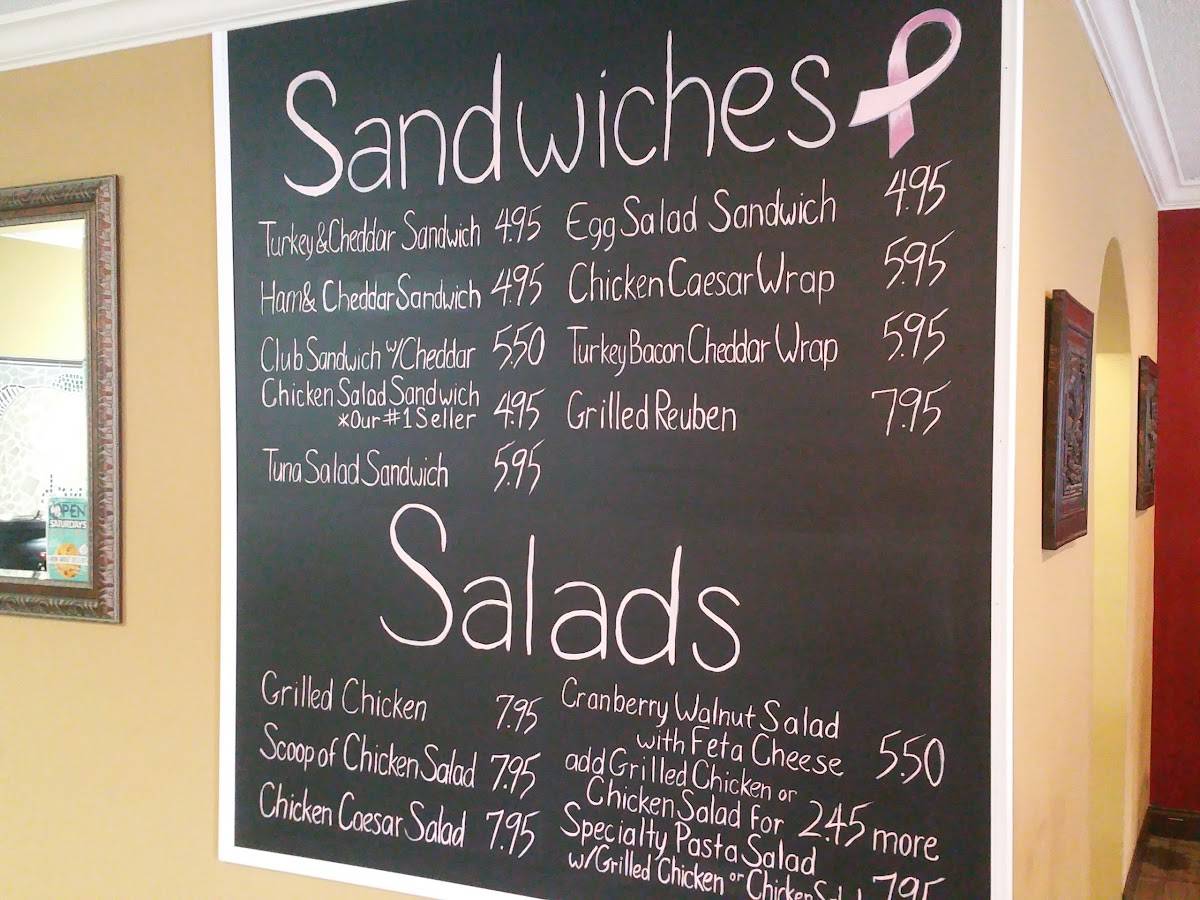 Sandwiches
Turkey & Cheddar Sandwich 4.95
Ham & Cheddar Sandwich 4.95
Club Sandwich w/Cheddar 5.50
Chicken Salad Sandwich
*Our #1 Seller 4.95
Tuna Salad Sandwich 5.95
Egg Salad Sandwich 4.95
Chicken Caesar Wrap 5.95
Turkey Bacon Cheddar Wrap 5.95
Grilled Reuben 7.95
Salads
Grilled Chicken 7.95
Scoop of Chicken Salad 7.95
Chicken Caesar Salad 7.95
Cranberry Walnut Salad
with Feta Cheese 5.50
add Grilled Chicken or
Chicken Salad for 2.45 more
Specialty Pasta Salad
w/Grilled Chicken or Chicken 7.95
OPEN
SATURDAYS